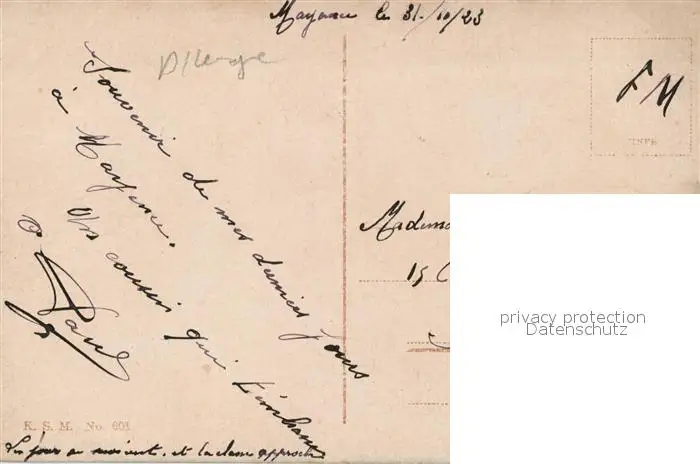 Mayence le 31/10/23
F M
Souvenir de mes derniers jours
à Mayence.
cousin qui t'embrasse
Paul
Mademo
15
K. S. M. No. 601
Les jours au moinent. et la classe approche
privacy protection
Datenschutz